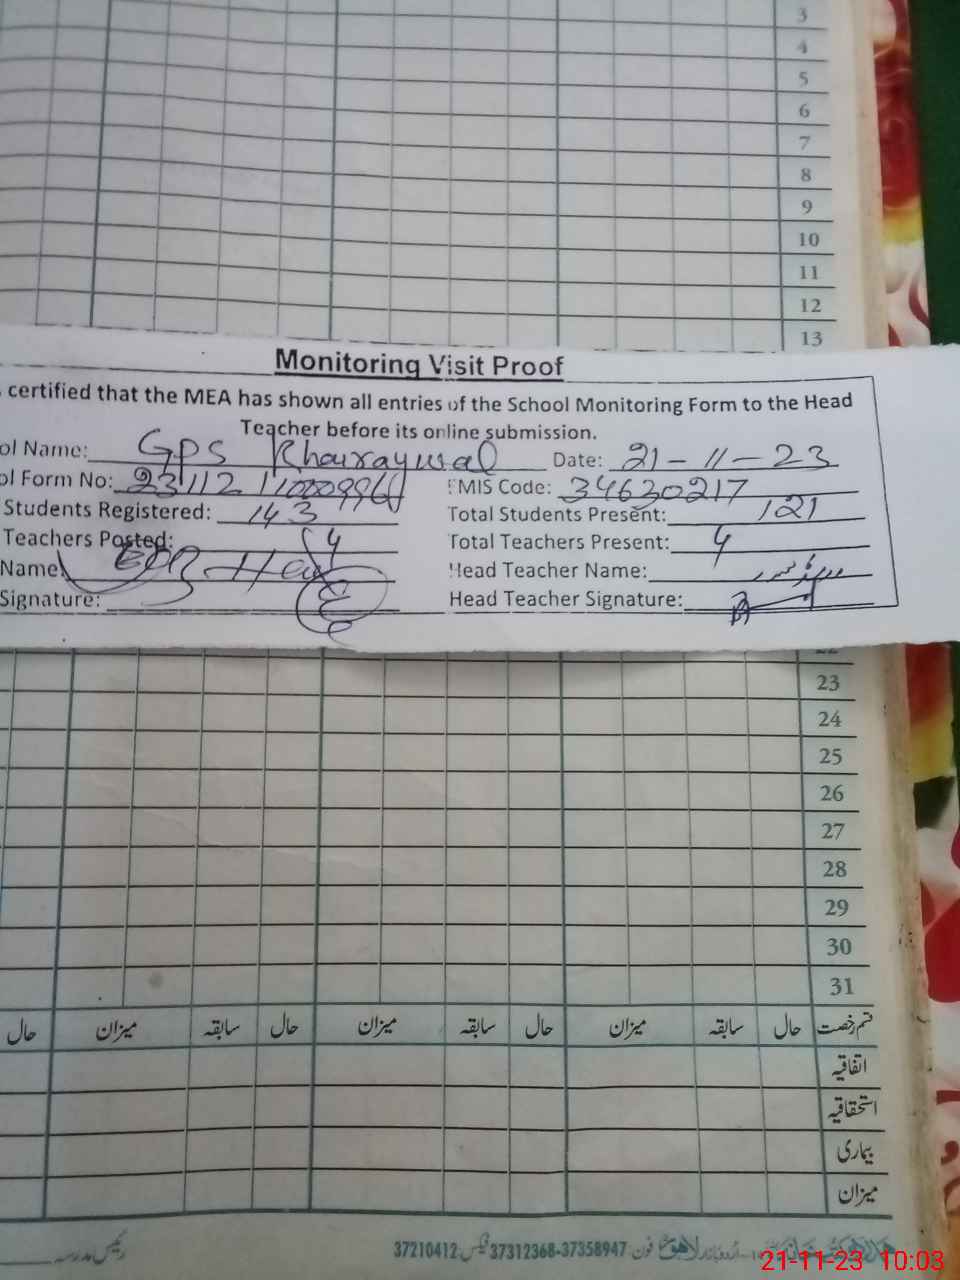 3
4
5
6
7
8
9
10
11
12
13
Monitoring Visit Proof
certified that the MEA has shown all entries of the School Monitoring Form to the Head
Teacher before its online submission.
ol Name: GPS Date: 21-11-23
ol Form No: EMIS Code: 34630217
Students Registered: 143 Total Students Present: 121
Teachers Posted: 4 Total Teachers Present: 4
Name Head Teacher Name:
Signature: Head Teacher Signature:
22
23
24
25
26
27
28
29
30
31
قسم رخصت حال سابقہ میزان حال سابقہ میزان حال سابقہ میزان حال
اتفاقیہ
استحقاقیہ
بیماری
میزان
اُردو بازار لاہور فون 37312368-37358947 فیکس 37210412 رئیس مدرسہ
21-11-23 10:03